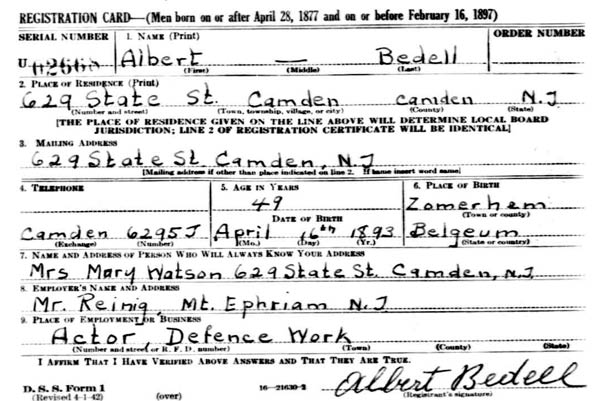 REGISTRATION CARD—(Men born on or after April 28, 1877 and on or before February 16, 1897)
SERIAL NUMBER 1. NAME (Print) ORDER NUMBER
U Albert Bedell
(First) (Middle) (Last)
2. PLACE OF RESIDENCE (Print)
629 State St. Camden Camden N.J
(Number and street) (Town, township, village, or city) (County) (State)
[THE PLACE OF RESIDENCE GIVEN ON THE LINE ABOVE WILL DETERMINE LOCAL BOARD
JURISDICTION; LINE 2 OF REGISTRATION CERTIFICATE WILL BE IDENTICAL]
3. MAILING ADDRESS
629 State St. Camden, N.J
[Mailing address if other than place indicated on line 2. If same insert word same]
4. TELEPHONE 5. AGE IN YEARS 6. PLACE OF BIRTH
49 Zomerhem
DATE OF BIRTH (Town or county)
Camden 6295J April 16th 1893 Belgeum
(Exchange) (Number) (Mo.) (Day) (Yr.) (State or country)
7. NAME AND ADDRESS OF PERSON WHO WILL ALWAYS KNOW YOUR ADDRESS
Mrs Mary Watson 629 State St. Camden, N.J
8. EMPLOYER'S NAME AND ADDRESS
Mr. Reinig, Mt. Ephriam N.J
9. PLACE OF EMPLOYMENT OR BUSINESS
Actor, Defence Work
(Number and street or R. F. D. number) (Town) (County) (State)
I AFFIRM THAT I HAVE VERIFIED ABOVE ANSWERS AND THAT THEY ARE TRUE.
D. S. S. Form 1 Albert Bedell
(Revised 4-1-42) (over) 16—21630-2 (Registrant's signature)